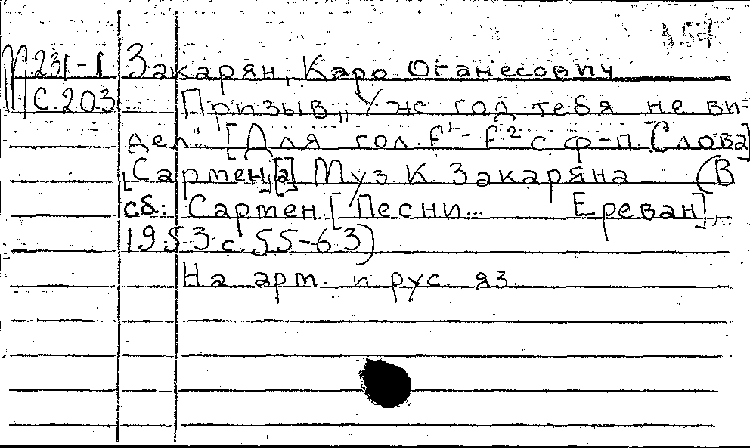 М231-1 Закарян, Каро Оганесович
С.203 Призыв „Уже год тебя не ви-
дел" [Для гол. f¹-f² с ф-п. [Слова]
[Сармен[а] Муз К Закаряна (В
сб: Сармен [Песни... Ереван],
1953 с 55-63)
На арм. и рус. яз